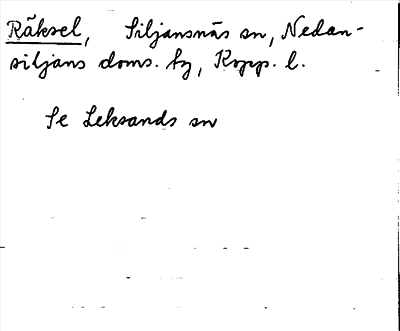 Räksel, Siljansnäs sn, Nedan-
siljans doms. hg, Kopp. l.
Se Leksands sn